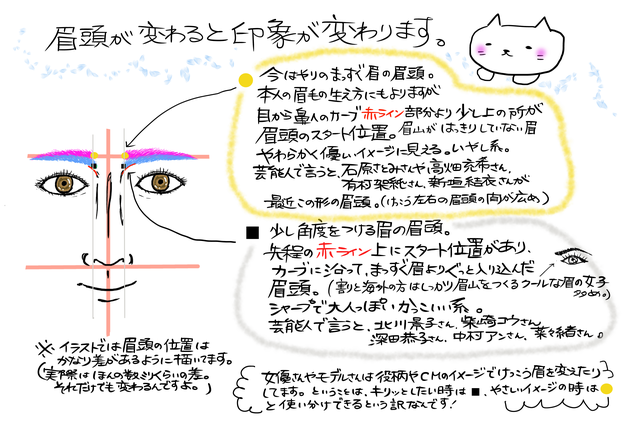 眉頭が変わると印象が変わります。
今はやりのまっすぐ眉の眉頭。
本人の眉毛の生え方にもよりますが
目から鼻へのカーブ赤ライン部分より少し上の所が
眉頭のスタート位置。眉山がはっきりしていない眉
やわらかく優しいイメージに見える。いやし系。
芸能人で言うと、石原さとみさんや高畑充希さん、
有村架純さん、新垣結衣さんが
最近この形の眉頭。(けっこう左右の眉頭の間が広め)
■ 少し角度をつける眉の眉頭。
先程の赤ライン上にスタート位置があり、
カーブに沿って、まっすぐ眉よりぐっと入り込んだ
眉頭。(割と海外の方はしっかり眉山をつくるクールな眉の女子
多め。)
シャープで大人っぽいかっこいい系。
芸能人で言うと、北川景子さん、柴崎コウさん、
深田恭子さん、中村アンさん、菜々緒さん。
※ イラストでは眉頭の位置は
かなり差があるように描いてます。
(実際はほんの数ミリくらいの差。
それだけでも変わるんですよ。)
女優さんやモデルさんは役柄やCMのイメージでけっこう眉を変えたり
してます。ということは、キリッとしたい時は■、やさしいイメージの時は
と使い分けできるという訳なんです!